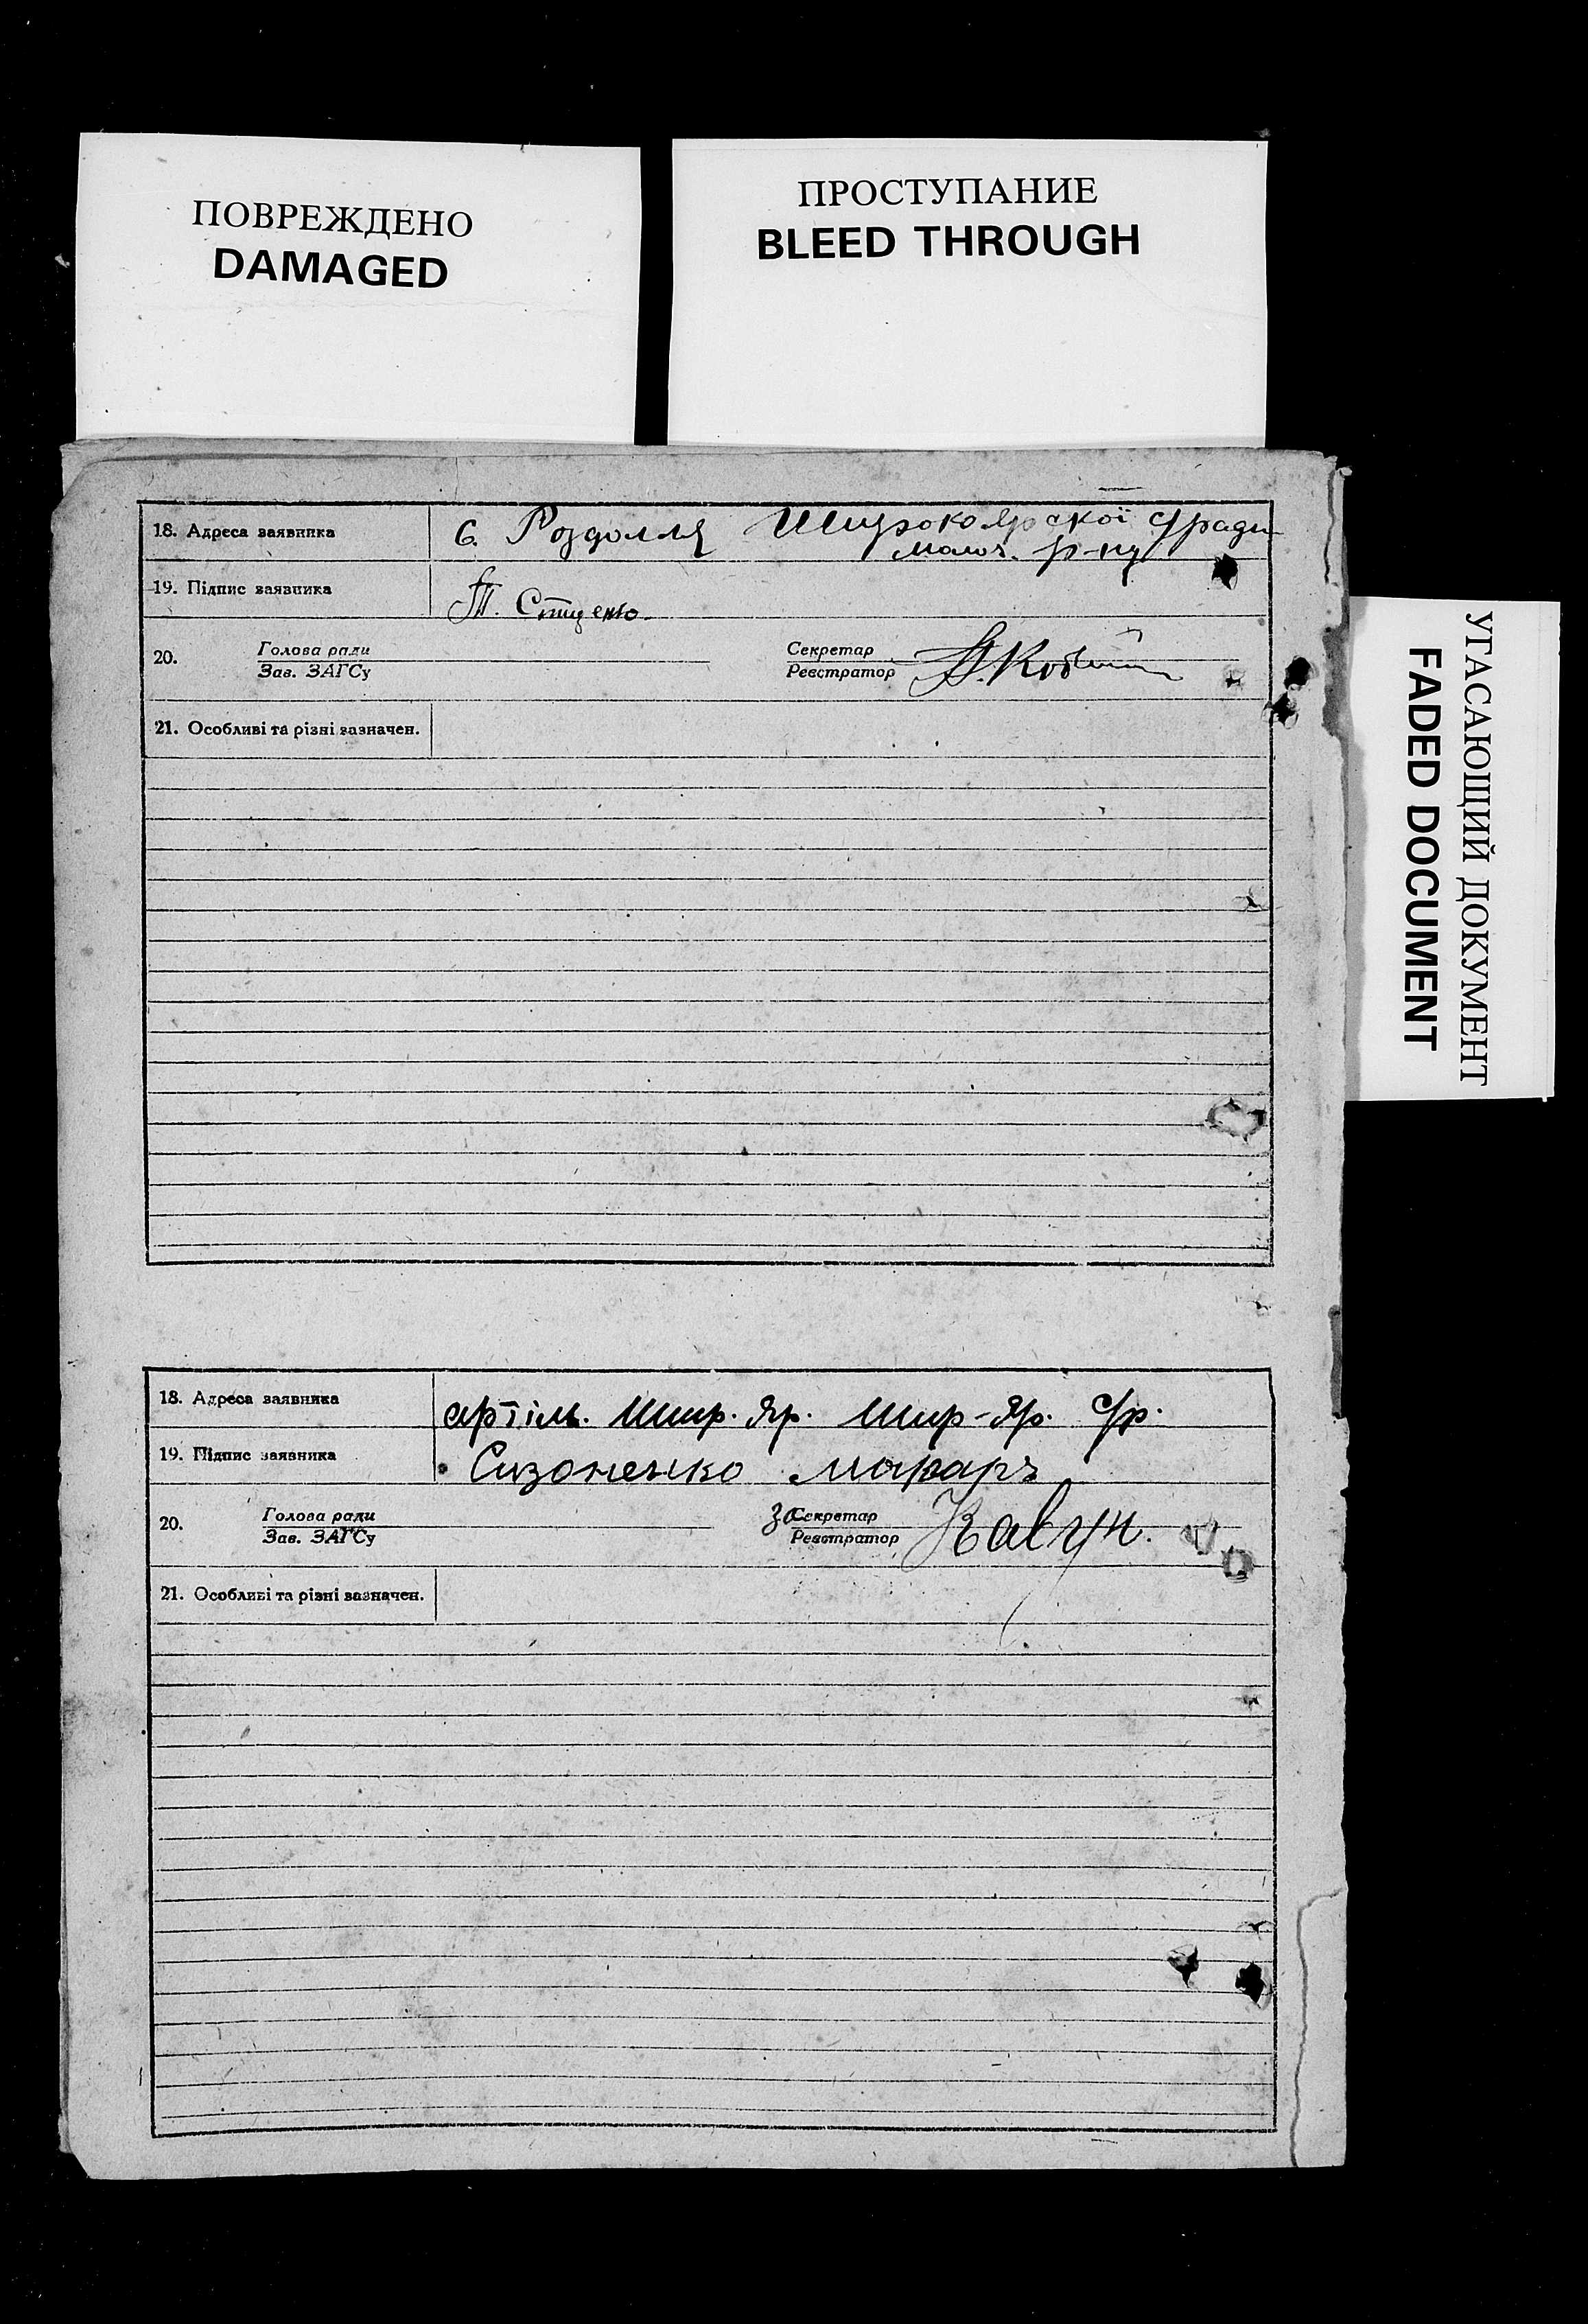 ПОВРЕЖДЕНО
DAMAGED
ПРОСТУПАНИЕ
BLEED THROUGH
УГАСАЮЩИЙ ДОКУМЕНТ
FADED DOCUMENT
18. Адреса заявника с. Роздолля Широкоярской с/ради
молоч. р-ну
19. Підпис заявника Т.
20. Голова ради Секретар
Зав. ЗАГСу Реєстратор
21. Особливі та різні зазначен.
18. Адреса заявника артіль. Шир. Яр. Шир-Яр. с/р.
19. Підпис заявника Сизоненко Макаръ
20. Голова ради За Секретар Кавун.
Зав. ЗАГСу Реєстратор
21. Особливі та різні зазначен.